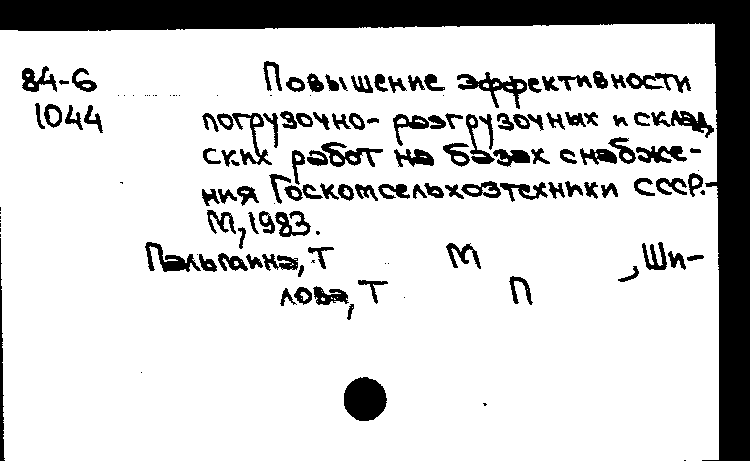 84-6 Повышение эффективности
1044 погрузочно-разгрузочных и склад
ских работ на базах снабже-
ния Госкомсельхозтехники СССР.-
М, 1983.
Т М , Ши-
лова, Т П